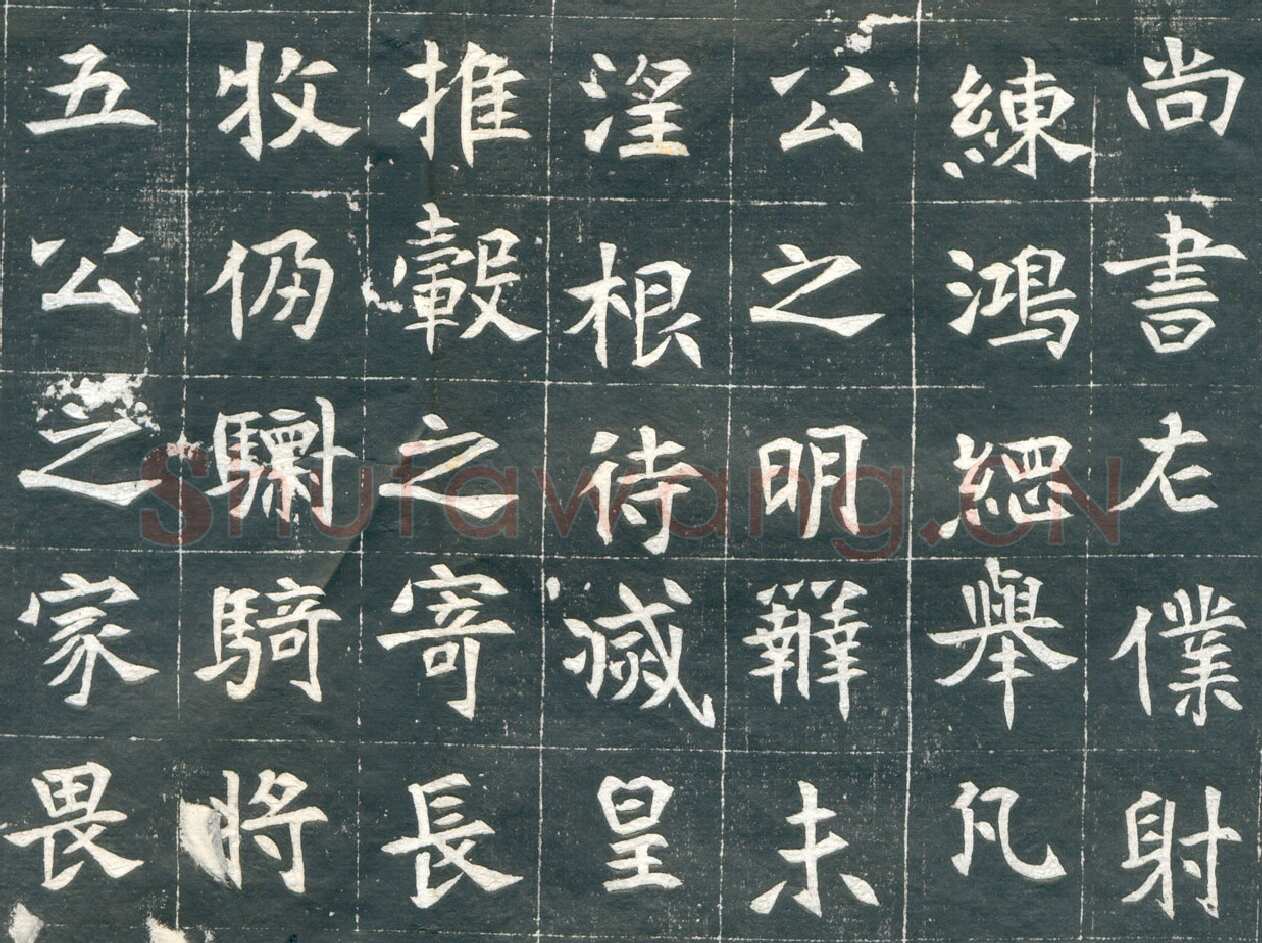 尚書左僕射
練鴻綱舉凡
公之明辯未
淫根待滅皇
推轂之寄長
牧仍驃騎將
五公之家畏
Shufawang.CN